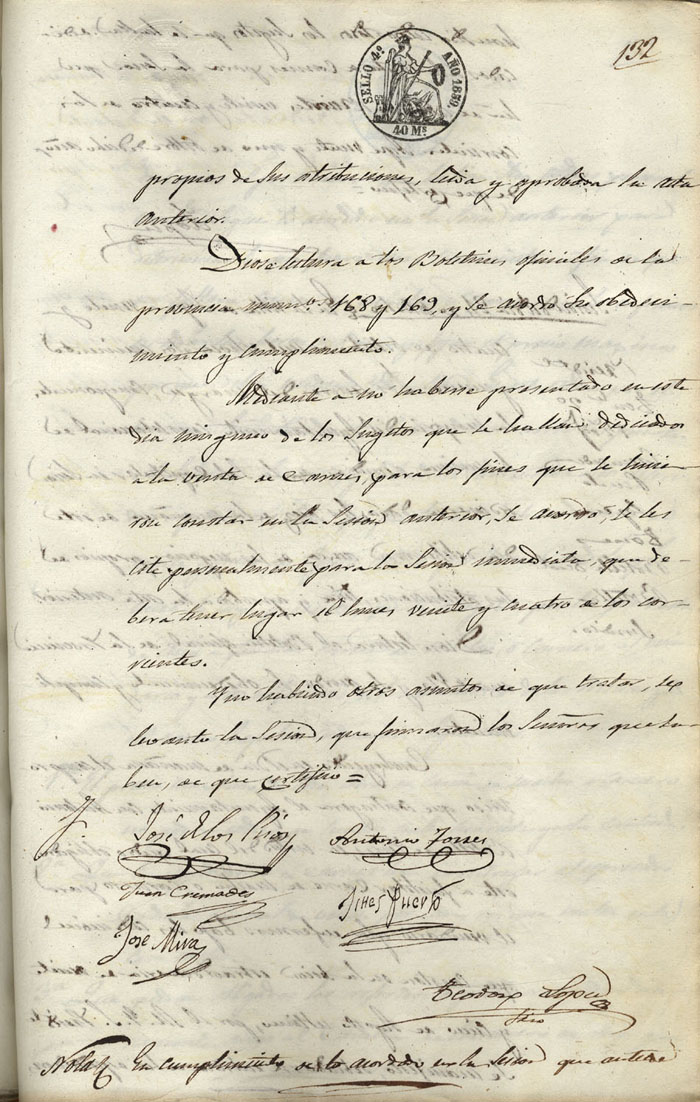 132
SELLO 4º AÑO 1859.
40 Ms
propios de sus atribuciones, leida y aprobada la acta
anterior.
Diose lectura a los Boletines oficiales de la
provincia numos. 168 y 169, y se acordo su obedeci-
miento y cumplimiento.
Mediante a no haberse presentado en este
dia ninguno de los Sugetos que se hallan dedicados
a la venta de Carnes, para los fines que se hicie-
ron constar en la Sesion anterior, Se acordo, Se les
cite personalmente para la Sesion inmediata, que de-
bera tener lugar el lunes veinte y cuatro de los cor-
rientes.
Y no habiendo otros asuntos de que tratar, se
levanto la Sesion, que firmaron los Señores que sa-
ben, de que certifico =
José de los
Antonio Torres
Juan Cremades
Gines Puerto
Jose Mira
Teodoro Lopez
Srio
Nota En cumplimiento de lo acordado en la Sesion que antecede